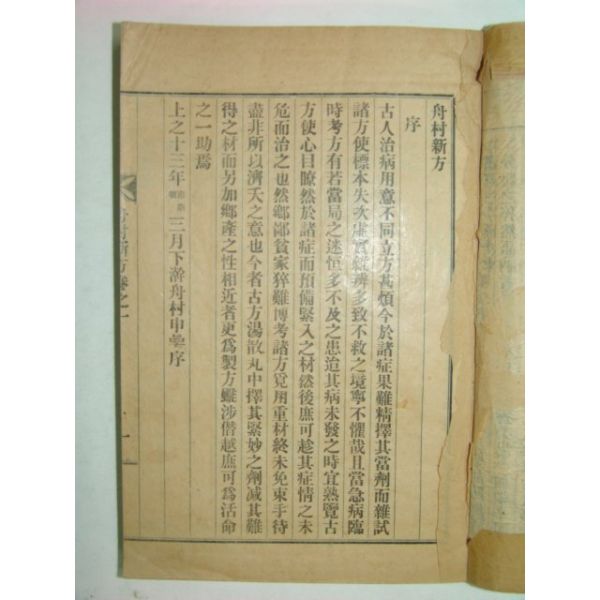 舟村新方
序
古人治病用意不同立方甚煩今於諸症果難精擇其當劑而雜試
諸方使標本失次虛實難辨多致不救之境寧不懼哉且當急病臨
時考方有若當局之迷恒多不及之患迨其病未發之時宜熟覽古
方使心目瞭然於諸症而預備緊入之材然後庶可趁其症情之未
危而治之也然鄉鄙貧家猝難博考諸方覓用重材終未免束手待
盡非所以濟夭之意也今者古方湯散丸中擇其緊妙之劑減其難
得之材而另加鄉產之性相近者更爲製方雖涉僭越庶可爲活命
之一助焉
上之十三年三月下澣舟村申序
舟村新方卷之一
一